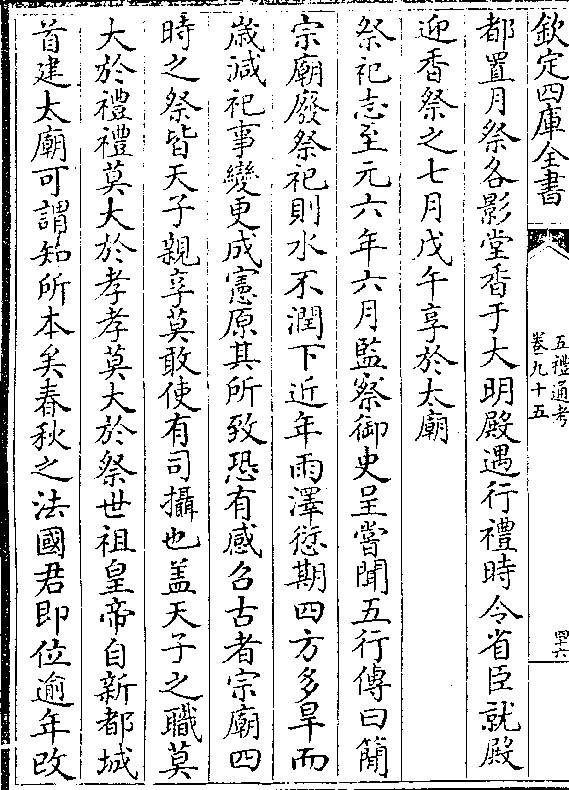 欽定四庫全書
五禮通考
卷九十五
四十六
都置月祭各影堂香于大明殿遇行禮時令省臣就殿
迎香祭之七月戊午享於太廟
祭祀志至元六年六月監察御史呈嘗聞五行傳曰簡
宗廟廢祭祀則水不潤下近年雨澤愆期四方多旱而
歳減祀事變更成憲原其所致恐有感召古者宗廟四
時之祭皆天子親享莫敢使有司攝也盖天子之職莫
大於禮禮莫大於孝孝莫大於祭世祖皇帝自新都城
首建太廟可謂知所本矣春秋之法國君即位逾年改